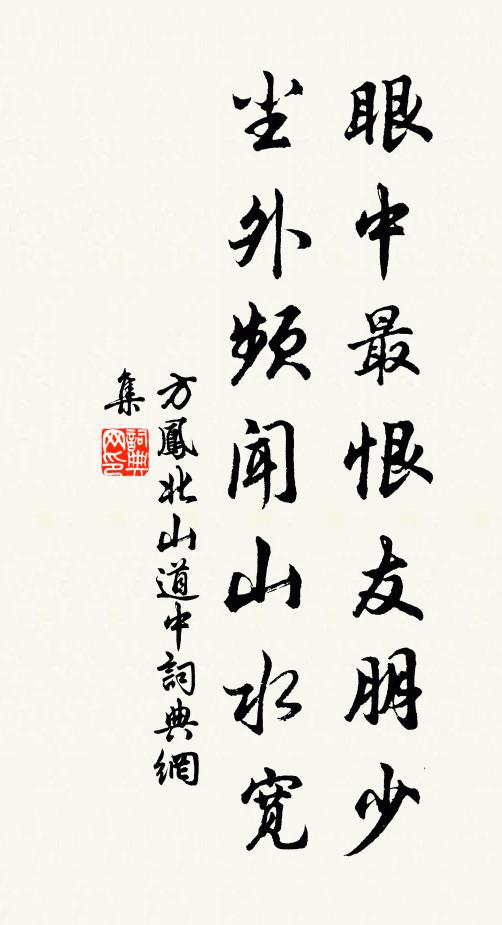 眼中最恨友朋少
尘外频闻山水宽
方鳳北山道中詞典網
集
詞典网印